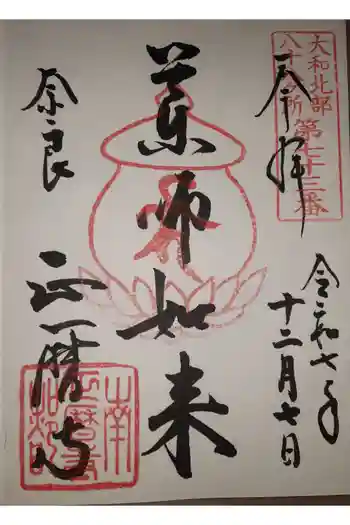 奉拝
大和北部
八十八ヶ所
第七十三番
令和七年
十二月七日
薬師如来
奈良
正暦寺